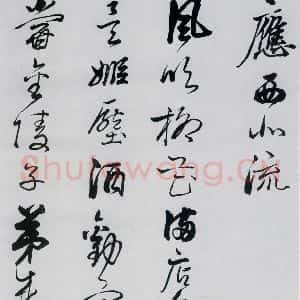 應西北流
風吹柳花滿店
吳姬壓酒勸客
嘗金陵子弟來
Shufawang.cn